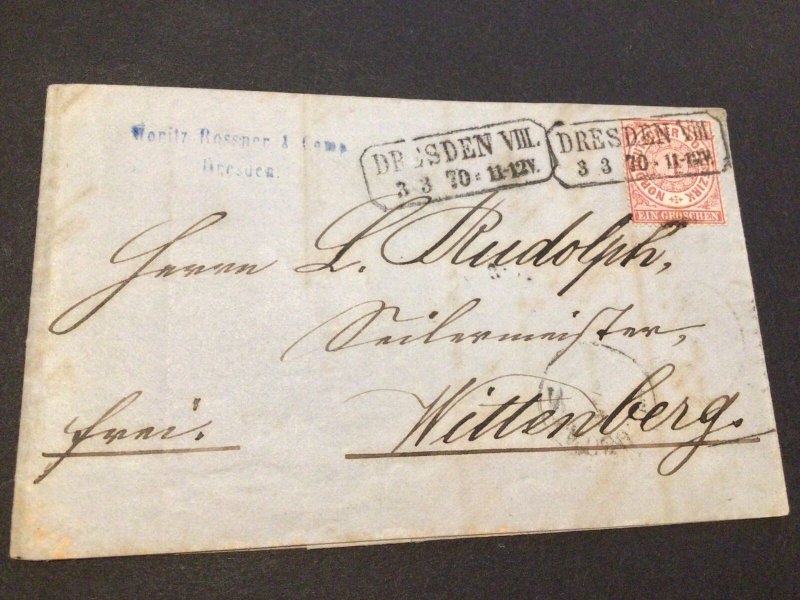 Moritz Rossner & Comp
Dresden.
DRESDEN VIII.
3 3 70 · 11-12V.
DRESDEN VIII.
3 3 70 · 11-12V.
NORD
BEZIRK
EIN GROSCHEN
Herrn L. Rudolph,
Seilermeister,
frei.
Wittenberg.